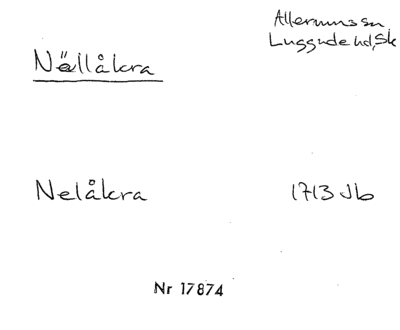 Allerums sn
Luggude hd, Sk
Nällåkra
Nelåkra 1713 Jb
Nr 17874